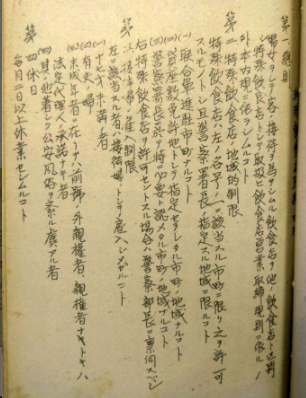 第一 趣旨
婦女ヲシテ客ノ接待ヲ為サシムル飲食店ハ他ノ飲食店ト区別
シ特殊飲食店トシテ取扱ヒ飲食店営業取締規則ニ依ルノ
外本内規ニ依ラシムルコト
第二 特殊飲食店ノ地域的制限
特殊飲食店ハ左ノ各号ノ一ニ該当スル市町ニ限リ之ヲ許可
スルモノトシ且警察署長ノ指定スル地域ニ限ルコト
(一) 聯合軍進駐市町ノ地域ナルコト
(二) 貸座敷免許地トシテ指定セラレタル市町ノ地域ナルコト
(三) 警察署長ニ於テ特ニ必要ト認メタル市町ノ地域ナルコト
右特殊飲食店ノ許可ヲセントスル場合ハ警察部長ニ稟伺スベシ
第三 接待婦ノ雇入制限
左ニ該当スル者ハ接待婦トシテ雇入レシメザルコト
(一) 十七才未満ノ者
(二) 有夫ノ婦
(三) 未成年者ニ在リテハ前号ノ外親権者、親権者ナキトキハ
法定代理人ノ承諾ナキ者
(四) 其ノ他著シク公安風俗ヲ紊ル虞アル者
第四 休日
毎月二日以上休業セシムルコト